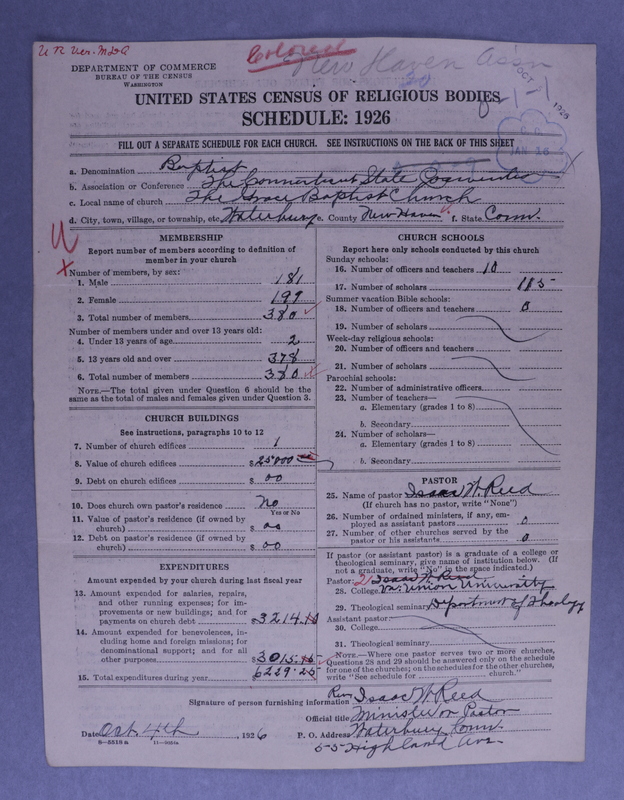 U R Ver. MDA
Colored
New Haven Assn
DEPARTMENT OF COMMERCE
BUREAU OF THE CENSUS
WASHINGTON
20
OCT 1926
UNITED STATES CENSUS OF RELIGIOUS BODIES
SCHEDULE: 1926
JAN 16
FILL OUT A SEPARATE SCHEDULE FOR EACH CHURCH. SEE INSTRUCTIONS ON THE BACK OF THIS SHEET
a. Denomination Baptist
b. Association or Conference The Connecticut State Convention
c. Local name of church The Grace Baptist Church
d. City, town, village, or township, etc. Waterbury e. County New Haven f. State Conn.
MEMBERSHIP
Report number of members according to definition of
member in your church
Number of members, by sex:
1. Male 181
2. Female 199
3. Total number of members 380
Number of members under and over 13 years old:
4. Under 13 years of age 2
5. 13 years old and over 378
6. Total number of members 380
NOTE.—The total given under Question 6 should be the
same as the total of males and females given under Question 3.
CHURCH BUILDINGS
See instructions, paragraphs 10 to 12
7. Number of church edifices 1
8. Value of church edifices $25000
9. Debt on church edifices $ 00
10. Does church own pastor's residence? No
Yes or No
11. Value of pastor's residence (if owned by
church) $ 00
12. Debt on pastor's residence (if owned by
church) $ 00
EXPENDITURES
Amount expended by your church during last fiscal year
13. Amount expended for salaries, repairs,
and other running expenses; for im-
provements or new buildings; and for
payments on church debt $3214.10
14. Amount expended for benevolences, in-
cluding home and foreign missions; for
denominational support; and for all
other purposes $3015.15
15. Total expenditures during year 6229.25
CHURCH SCHOOLS
Report here only schools conducted by this church
Sunday schools:
16. Number of officers and teachers 10
17. Number of scholars 185
Summer vacation Bible schools:
18. Number of officers and teachers 0
19. Number of scholars
Week-day religious schools:
20. Number of officers and teachers
21. Number of scholars
Parochial schools:
22. Number of administrative officers
23. Number of teachers—
a. Elementary (grades 1 to 8)
b. Secondary
24. Number of scholars—
a. Elementary (grades 1 to 8)
b. Secondary
PASTOR
25. Name of pastor Isaac W. Reed
(If church has no pastor, write "None")
26. Number of ordained ministers, if any, em-
ployed as assistant pastors 0
27. Number of other churches served by the
pastor or his assistants 0
If pastor (or assistant pastor) is a graduate of a college or
theological seminary, give name of institution below. (If
not a graduate, write "No" in the space indicated.)
Pastor: Isaac W. Reed
28. College Va. Union University
29. Theological seminary Department of Theology
Assistant pastor:
30. College
31. Theological seminary
NOTE.—Where one pastor serves two or more churches,
Questions 28 and 29 should be answered only on the schedule
for one of the churches; on the schedules for the other churches,
write "See schedule for church."
Signature of person furnishing information Rev. Isaac W. Reed
Official title Minister or Pastor
Date Oct. 4th, 1926 P. O. Address Waterbury Conn.
55 Highland Ave.